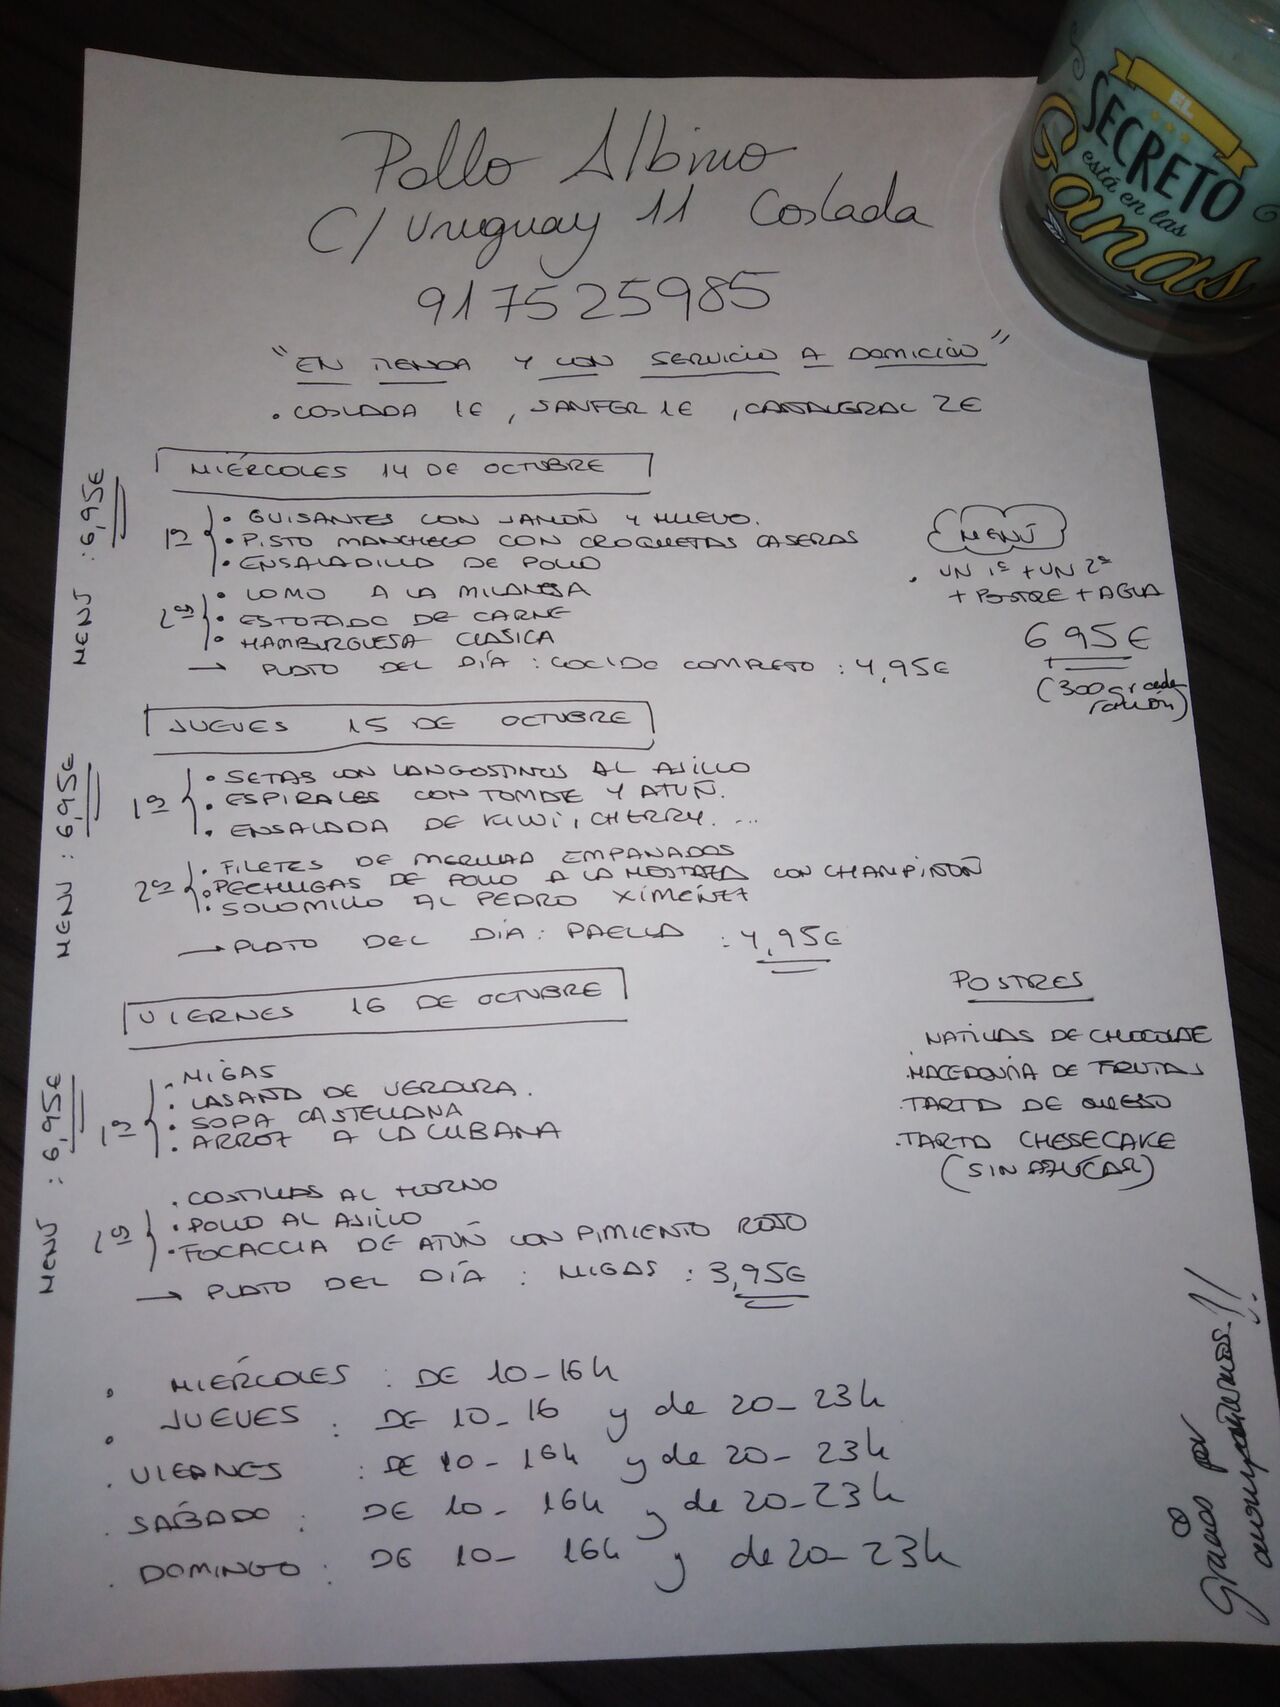 Pollo Albino
C/ Uruguay 11 Coslada
917525985
"EN TIENDA Y CON SERVICIO A DOMICILIO"
. COSLADA 1€, SANFER 1€, CAÑAVERAL 2€
MIÉRCOLES 14 DE OCTUBRE
MENÚ : 6,95€
1º
• GUISANTES CON JAMÓN Y HUEVO.
• PISTO MANCHEGO CON CROQUETAS CASERAS
• ENSALADILLA DE POLLO
2ºs
• LOMO A LA MILANESA
• ESTOFADO DE CARNE
• HAMBURGUESA CLASICA
→ PLATO DEL DÍA : COCIDO COMPLETO : 4,95€
MENÚ
. UN 1º + UN 2º
+ POSTRE + AGUA
6,95€
(300gr cada
ración)
JUEVES 15 DE OCTUBRE
MENU : 6,95€
1º
• SETAS CON LANGOSTINOS AL AJILLO
• ESPIRALES CON TOMATE Y ATÚN.
• ENSALADA DE KIWI, CHERRY. ...
2º
• FILETES DE MERLUZA EMPANADOS
• PECHUGAS DE POLLO A LA MOSTAZA CON CHAMPIÑÓN
• SOLOMILLO AL PEDRO XIMÉNEZ
→ PLATO DEL DÍA : PAELLA : 4,95€
VIERNES 16 DE OCTUBRE
MENÚ : 6,95€
1º
• MIGAS
• LASAÑA DE VERDURA.
• SOPA CASTELLANA
• ARROZ A LA CUBANA
2ºs
• COSTILLAS AL HORNO
• POLLO AL AJILLO
• FOCACCIA DE ATÚN CON PIMIENTO ROJO
→ PLATO DEL DÍA : MIGAS : 3,95€
POSTRES
NATILLAS DE CHOCOLATE
. MACEDONIA DE FRUTAS
. TARTA DE QUESO
. TARTA CHESECAKE
(SIN AZÚCAR)
• MIÉRCOLES : DE 10-16h
• JUEVES : DE 10-16 y de 20-23h
. VIERNES : DE 10-16h y de 20-23h
. SÁBADO : DE 10-16h y de 20-23h
. DOMINGO : DE 10-16h y de 20-23h
Gracias por
acompañarnos!!
EL
SECRETO
está en las
Ganas